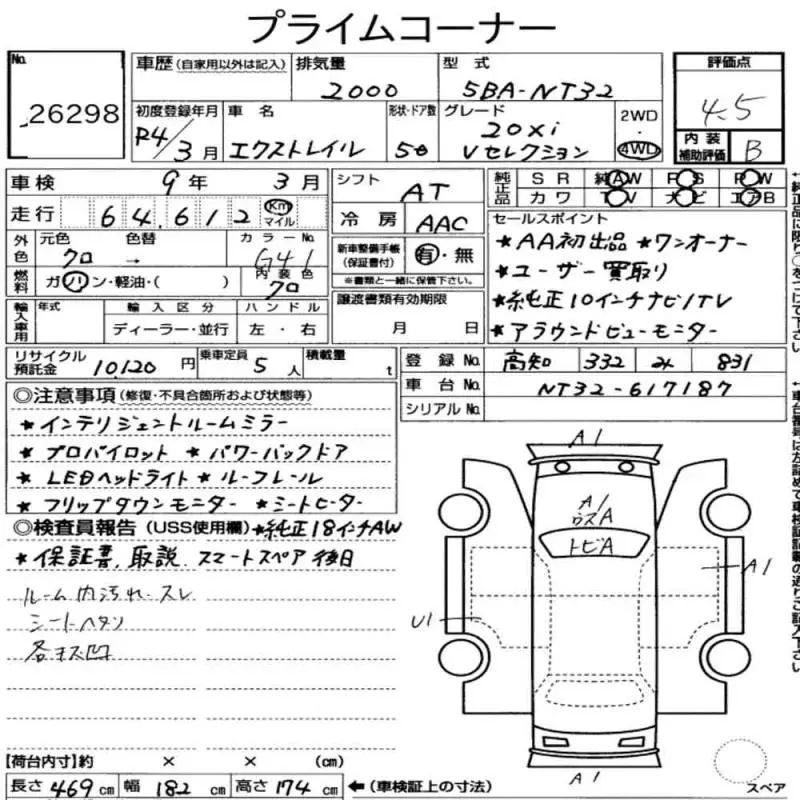 プライムコーナー
No. 26298
車歴 (自家用以外は記入) 排気量 2000 型式 5BA-NT32
初度登録年月 R4/3月 車名 エクストレイル 形状・ドア数 5D グレード 20xi Vセレクション 2WD・4WD
評価点 4.5
内装補助評価 B
車検 9年 3月
走行 64,612 Km マイル
シフト AT
冷房 AAC
純正品 SR 純AW PS PW
カワ TV ナビ エアB
外色 元色 クロ 色替 → カラーNo. G41
燃料 ガソリン・軽油・( ) 内装色 クロ
新車整備手帳 (保証書付) 有・無
※書類と一緒に保管下さい。
セールスポイント
★AA初出品 ★ワンオーナー
★ユーザー買取り
★純正10インチナビ/TV
★アラウンドビューモニター
輸入車用 年式 輸入区分 ハンドル
ディーラー・並行 左・右
譲渡書類有効期限
月 日
リサイクル預託金 10120円 乗車定員 5人 積載量 t
登録No. 高知 332 み 831
車台No. NT32-617187
シリアルNo.
◎注意事項 (修復・不具合箇所および状態等)
★インテリジェントルームミラー
★プロパイロット ★パワーバックドア
★LEDヘッドライト ★ルーフレール
★フリップダウンモニター ★シートヒーター
◎検査員報告 (USS使用欄) ★純正18インチAW
★保証書、取説、スマートスペア後日
ルーム内汚れ・スレ
シートヘタリ
各キズ凹
A1
A1
ウスA
トビA
A1
U1
A1
スペア
【荷台内寸】約 × × (cm)
長さ 469 cm 幅 182 cm 高さ 174 cm ←(車検証上の寸法)